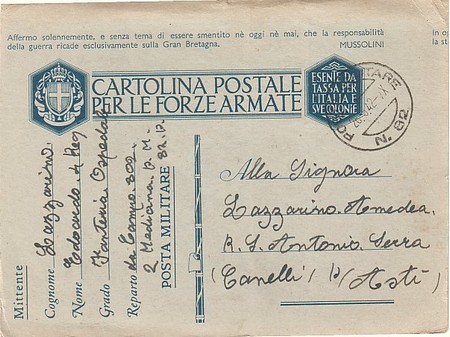 Affermo solennemente, e senza tema di essere smentito nè oggi nè mai, che la responsabilità
della guerra ricade esclusivamente sulla Gran Bretagna.
MUSSOLINI
CARTOLINA POSTALE
PER LE FORZE ARMATE
ESENTE DA
TASSA PER
L'ITALIA E
SVE COLONIE
N. 82
Mittente
Cognome Lazzarino
Nome Edoardo
Grado Fanteria Ospedale
Reparto da Campo 302
2 Mediana P.M.
POSTA MILITARE 82.
Alla Signora
Lazzarino Amedea
R. S. Antonio Serra
(Canelli) Asti